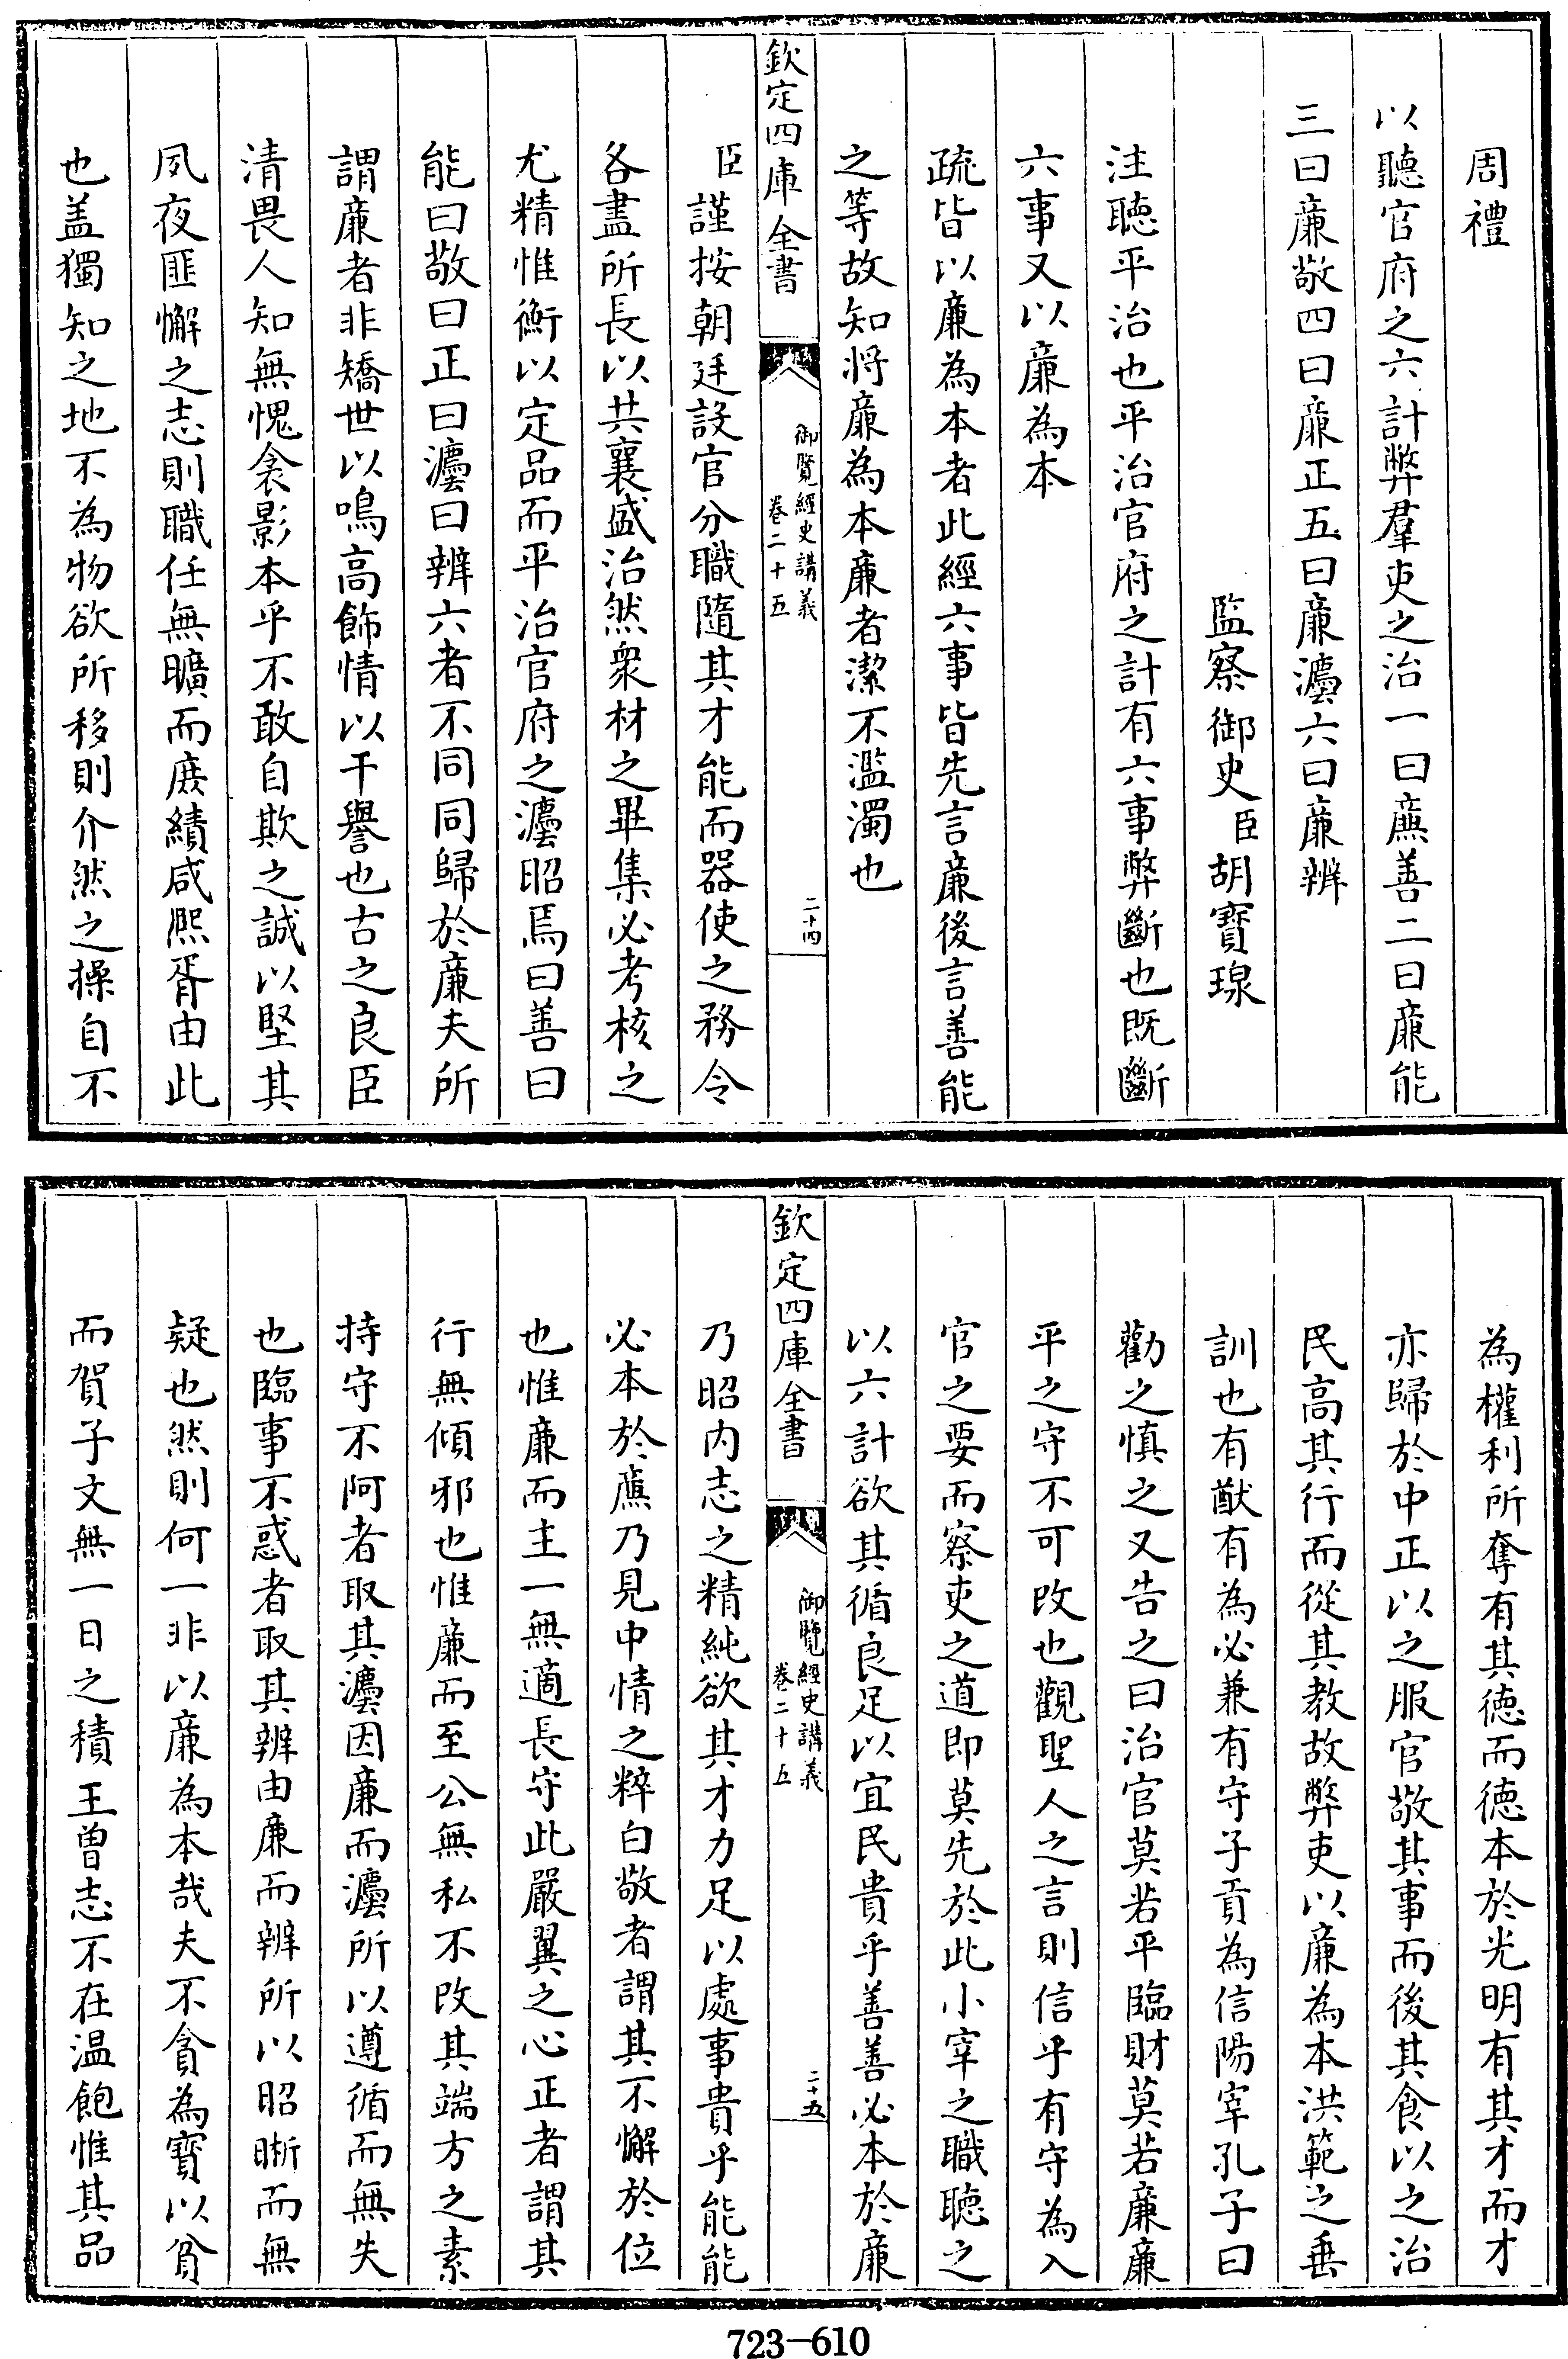 周禮
以聽官府之六計弊羣吏之治一曰廉善二曰廉能
三曰廉敬四曰廉正五曰廉灋六曰廉辨
監察御史臣胡寶瑔
注聽平治也平治官府之計有六事弊斷也既斷
六事又以廉為本
疏皆以廉為本者此經六事皆先言廉後言善能
之等故知將廉為本廉者潔不濫濁也
欽定四庫全書
御覽經史講義
卷二十五
二十四
臣謹按朝廷設官分職隨其才能而器使之務令
各盡所長以共襄盛治然衆材之畢集必考核之
尤精惟衡以定品而平治官府之灋昭焉曰善曰
能曰敬曰正曰灋曰辨六者不同同歸於廉夫所
謂廉者非矯世以鳴高飾情以干譽也古之良臣
清畏人知無愧衾影本乎不敢自欺之誠以堅其
夙夜匪懈之志則職任無曠而庶績咸熙胥由此
也盖獨知之地不為物欲所移則介然之操自不
為權利所奪有其徳而徳本於光明有其才而才
亦歸於中正以之服官敬其事而後其食以之治
民高其行而從其教故弊吏以廉為本洪範之垂
訓也有猷有為必兼有守子貢為信陽宰孔子曰
勸之慎之又告之曰治官莫若平臨財莫若廉廉
平之守不可改也觀聖人之言則信乎有守為入
官之要而察吏之道即莫先於此小宰之職聽之
以六計欲其循良足以宜民貴乎善善必本於廉
欽定四庫全書
御覽經史講義
卷二十五
二十五
乃昭内志之精純欲其才力足以處事貴乎能能
必本於廉乃見中情之粹白敬者謂其不懈於位
也惟廉而主一無適長守此嚴翼之心正者謂其
行無傾邪也惟廉而至公無私不改其端方之素
持守不阿者取其灋因廉而灋所以遵循而無失
也臨事不惑者取其辨由廉而辨所以昭晰而無
疑也然則何一非以廉為本哉夫不貪為寳以貧
而賀子文無一日之積王曽志不在温飽惟其品
723—610